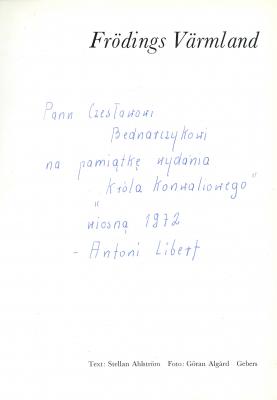 Frödings Värmland
Panu Czesławowi
Bednarczykowi
na pamiątkę wydania
"Króla Konwaliowego"
wiosną 1972
- Antoni Libert
Text: Stellan Ahlström Foto: Göran Algård Gebers